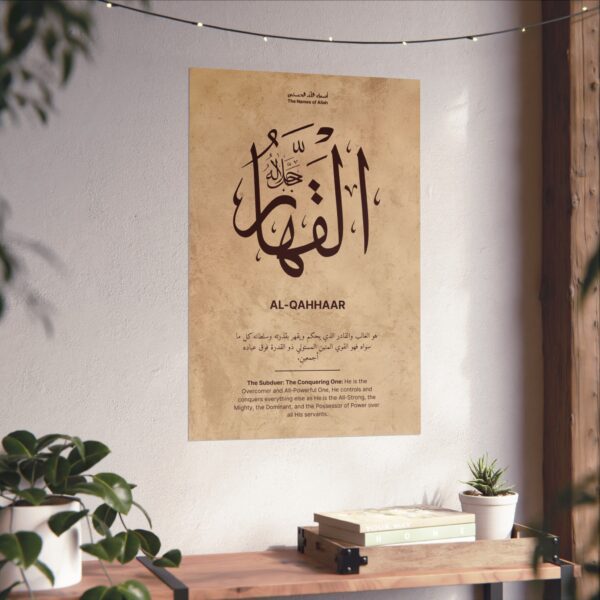 أسماء الله الحسنى
The Names of Allah
القهار
جل جلاله
AL-QAHHAAR
هو الغالب والقادر الذي يحكم ويقهر بقدرته وسلطانه كل ما
سواه فهو القوي المتين المستولي ذو القدرة فوق عباده
أجمعين.
The Subduer: The Conquering One: He is the
Overcomer and All-Powerful One, He controls and
conquers everything else as He is the All-Strong, the
Mighty, the Dominant, and the Possessor of Power over
all His servants.